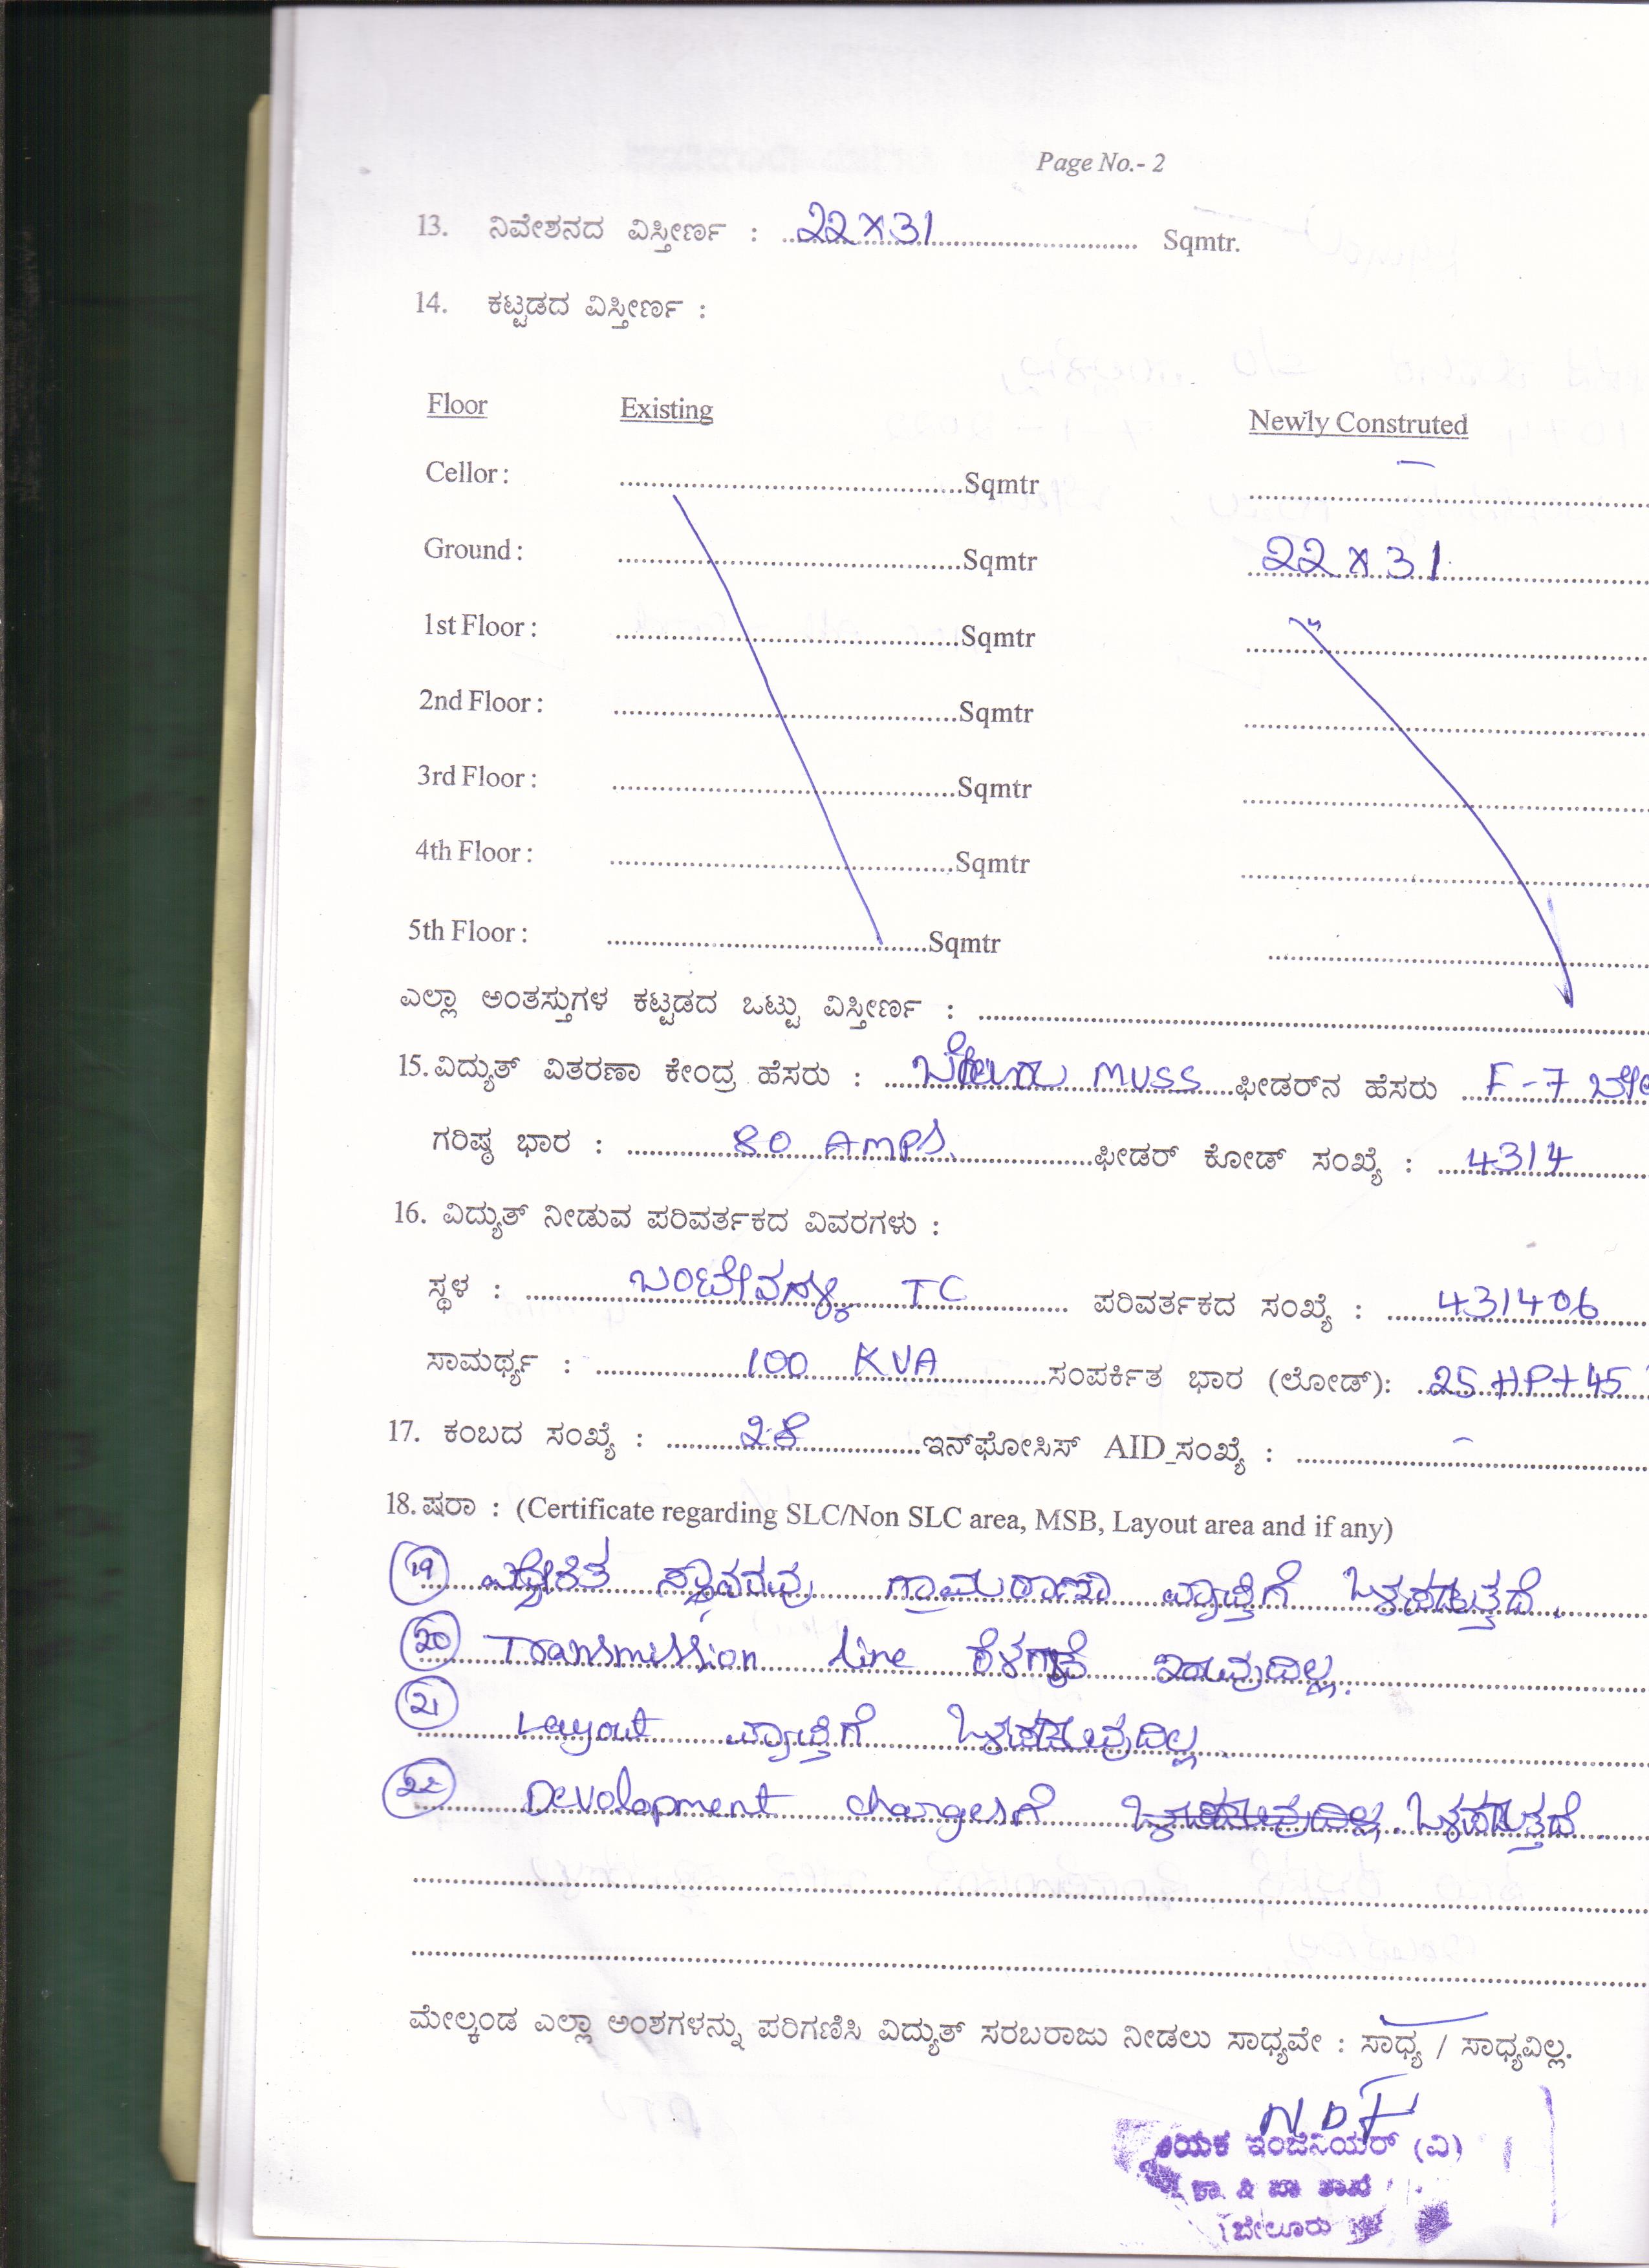 Page No.- 2
13. ನಿವೇಶನದ ವಿಸ್ತೀರ್ಣ : 22 x 31 Sqmtr.
14. ಕಟ್ಟಡದ ವಿಸ್ತೀರ್ಣ :
Floor Existing Newly Construted
Cellor : Sqmtr -
Ground : Sqmtr 22 x 31
1st Floor : Sqmtr
2nd Floor : Sqmtr
3rd Floor : Sqmtr
4th Floor : Sqmtr
5th Floor : Sqmtr
ಎಲ್ಲಾ ಅಂತಸ್ತುಗಳ ಕಟ್ಟಡದ ಒಟ್ಟು ವಿಸ್ತೀರ್ಣ :
15. ವಿದ್ಯುತ್ ವಿತರಣಾ ಕೇಂದ್ರ ಹೆಸರು : ಬೇಲೂರು MUSS ಫೀಡರ್‌ನ ಹೆಸರು F-7
ಗರಿಷ್ಠ ಭಾರ : 80 AMPS. ಫೀಡರ್ ಕೋಡ್ ಸಂಖ್ಯೆ : 4314
16. ವಿದ್ಯುತ್ ನೀಡುವ ಪರಿವರ್ತಕದ ವಿವರಗಳು :
ಸ್ಥಳ : TC ಪರಿವರ್ತಕದ ಸಂಖ್ಯೆ : 431406
ಸಾಮರ್ಥ್ಯ : 100 KVA ಸಂಪರ್ಕಿತ ಭಾರ (ಲೋಡ್): 25 HP + 45
17. ಕಂಬದ ಸಂಖ್ಯೆ : 28 ಇನ್‌ಫೋಸಿಸ್ AID_ಸಂಖ್ಯೆ : -
18. ಷರಾ : (Certificate regarding SLC/Non SLC area, MSB, Layout area and if any)
19 ಉದ್ದೇಶಿತ ಸ್ಥಾವರವು ಗ್ರಾಮಠಾಣಾ ವ್ಯಾಪ್ತಿಗೆ ಒಳಪಡುತ್ತದೆ.
20 Transmission line ಕೆಳಗಡೆ ಇರುವುದಿಲ್ಲ.
21 Layout ವ್ಯಾಪ್ತಿಗೆ ಒಳಪಡುವುದಿಲ್ಲ.
22 Devolopment chargesಗೆ ಒಳಪಡುವುದಿಲ್ಲ. ಒಳಪಡುತ್ತದೆ.
ಮೇಲ್ಕಂಡ ಎಲ್ಲಾ ಅಂಶಗಳನ್ನು ಪರಿಗಣಿಸಿ ವಿದ್ಯುತ್ ಸರಬರಾಜು ನೀಡಲು ಸಾಧ್ಯವೇ : ಸಾಧ್ಯ / ಸಾಧ್ಯವಿಲ್ಲ.
ಇಂಜಿನಿಯರ್ (ವಿ)
ಕಾ & ಪಾ ಶಾಖೆ
ಬೇಲೂರು